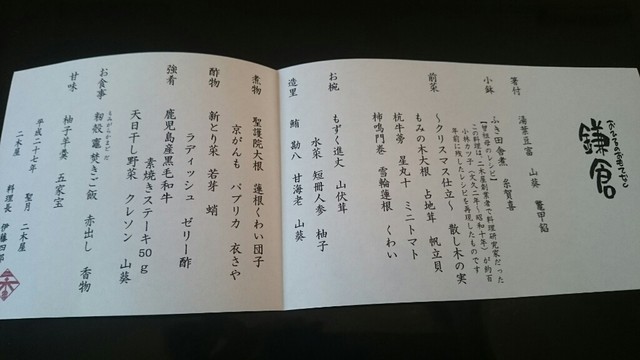 鎌倉
箸付
湯葉豆富 山葵 鼈甲餡
小鉢
ふき田舎煮 糸賀喜
【曽祖母のレシピ】
この料理は、二木屋創業者で料理研究家だった
小林カツ子（大久二年～昭和十年）が約百
年前に残したレシピを再現したものです
前菜
～クリスマス仕立～ 散し木の実
もみの木大根 占地茸 帆立貝
杭牛蒡 星丸十 ミニトマト
柿鳴門巻 雪輪蓮根 くわい
お椀
もずく進丈 山伏茸
水菜 短冊人参 柚子
造里
鮪 勘八 甘海老 山葵
煮物
聖護院大根 蓮根くわい団子
京がんも パプリカ 衣さや
酢物
新とり菜 若芽 蛸
ラディッシュ ゼリー酢
強肴
鹿児島産黒毛和牛
素焼きステーキ50g
天日干し野菜 クレソン 山葵
お食事
もみがらかまど
籾殻竈焚きご飯 赤出し 香物
甘味
柚子羊羹 五家宝
平成二十七年 聖月 二木屋
二木屋 料理長 伊藤四郎